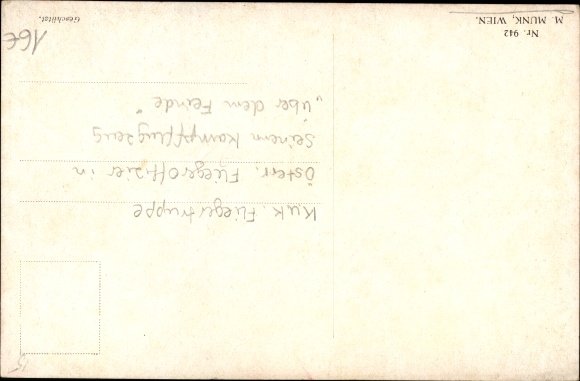 M. MUNK, WIEN.
Nr. 942
Geschützt.
16€
KuK Fliegertruppe
Österr. Fliegeroffizier in
seinem Kampfflugzeug
„über dem Feinde"